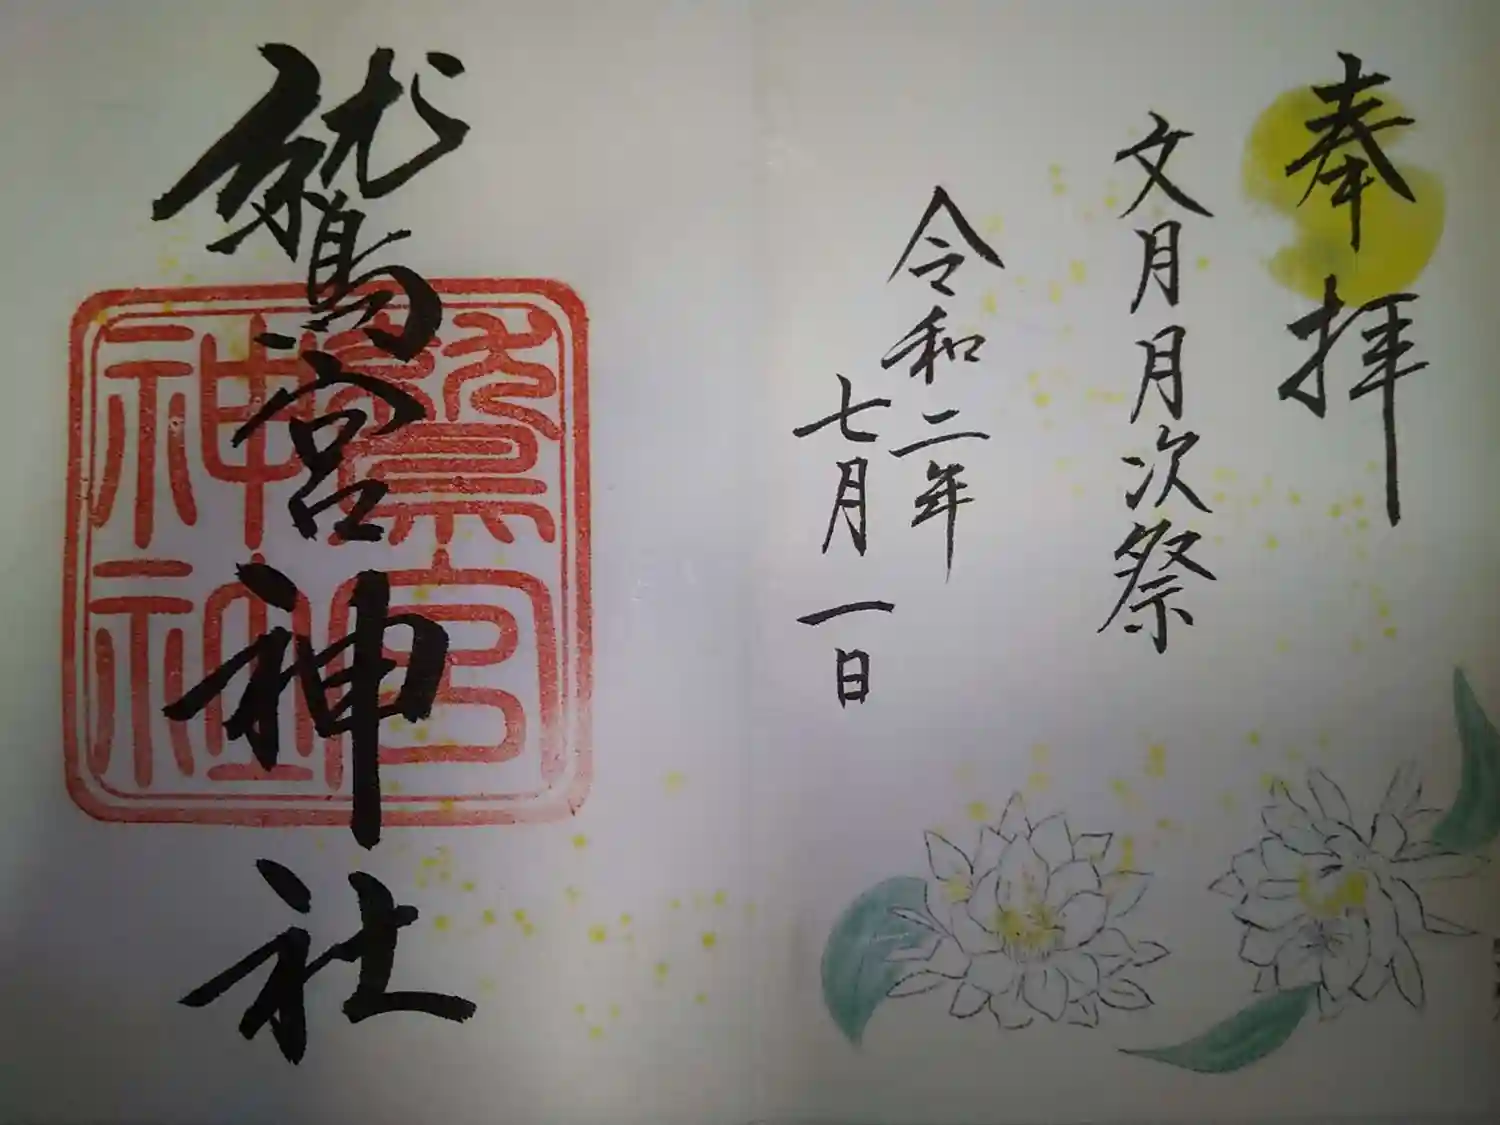 奉拝
文月月次祭
令和二年
七月一日
鷲宮神社
鷲宮神社